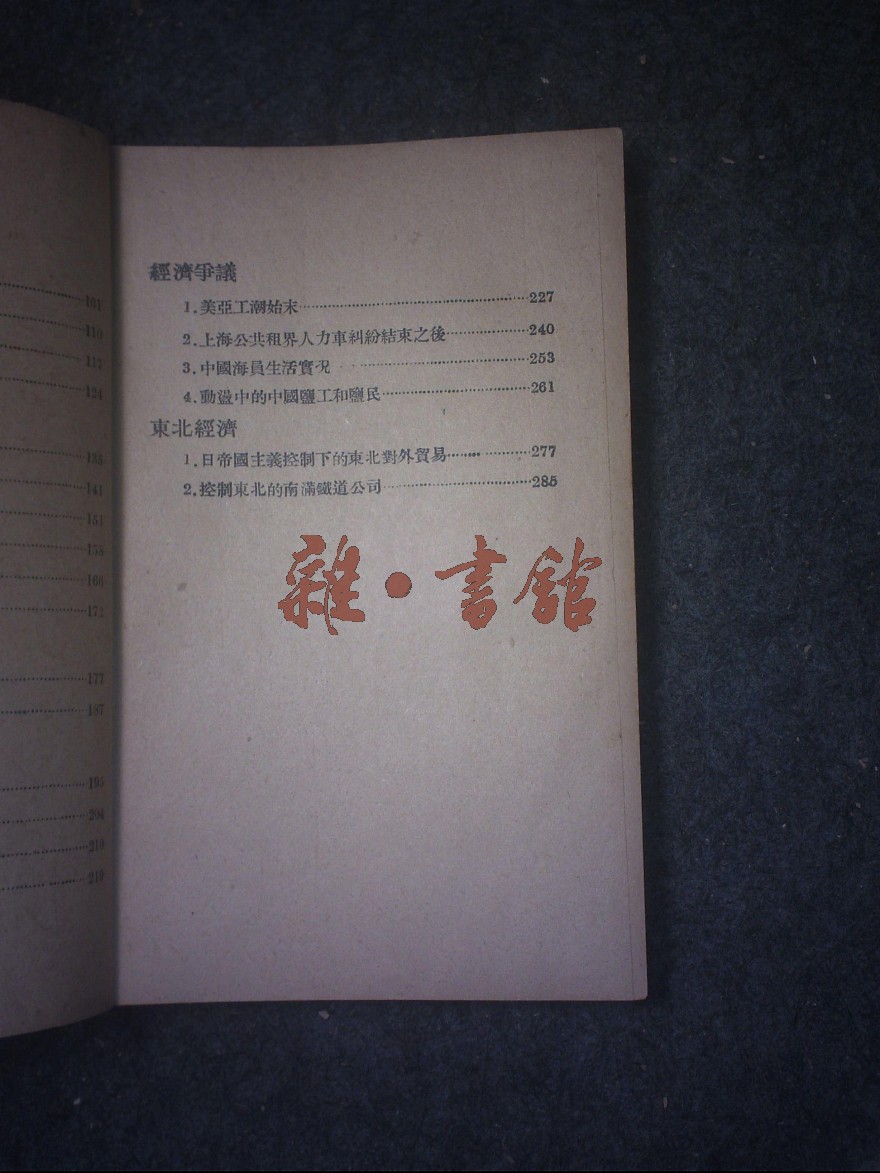 101
110
112
124
133
141
151
158
166
172
177
187
195
204
210
219
經濟爭議
1.美亞工潮始末 227
2.上海公共租界人力車糾紛結束之後 240
3.中國海員生活實況 253
4.動盪中的中國鹽工和鹽民 261
東北經濟
1.日帝國主義控制下的東北對外貿易 277
2.控制東北的南滿鐵道公司 285
雜·書館